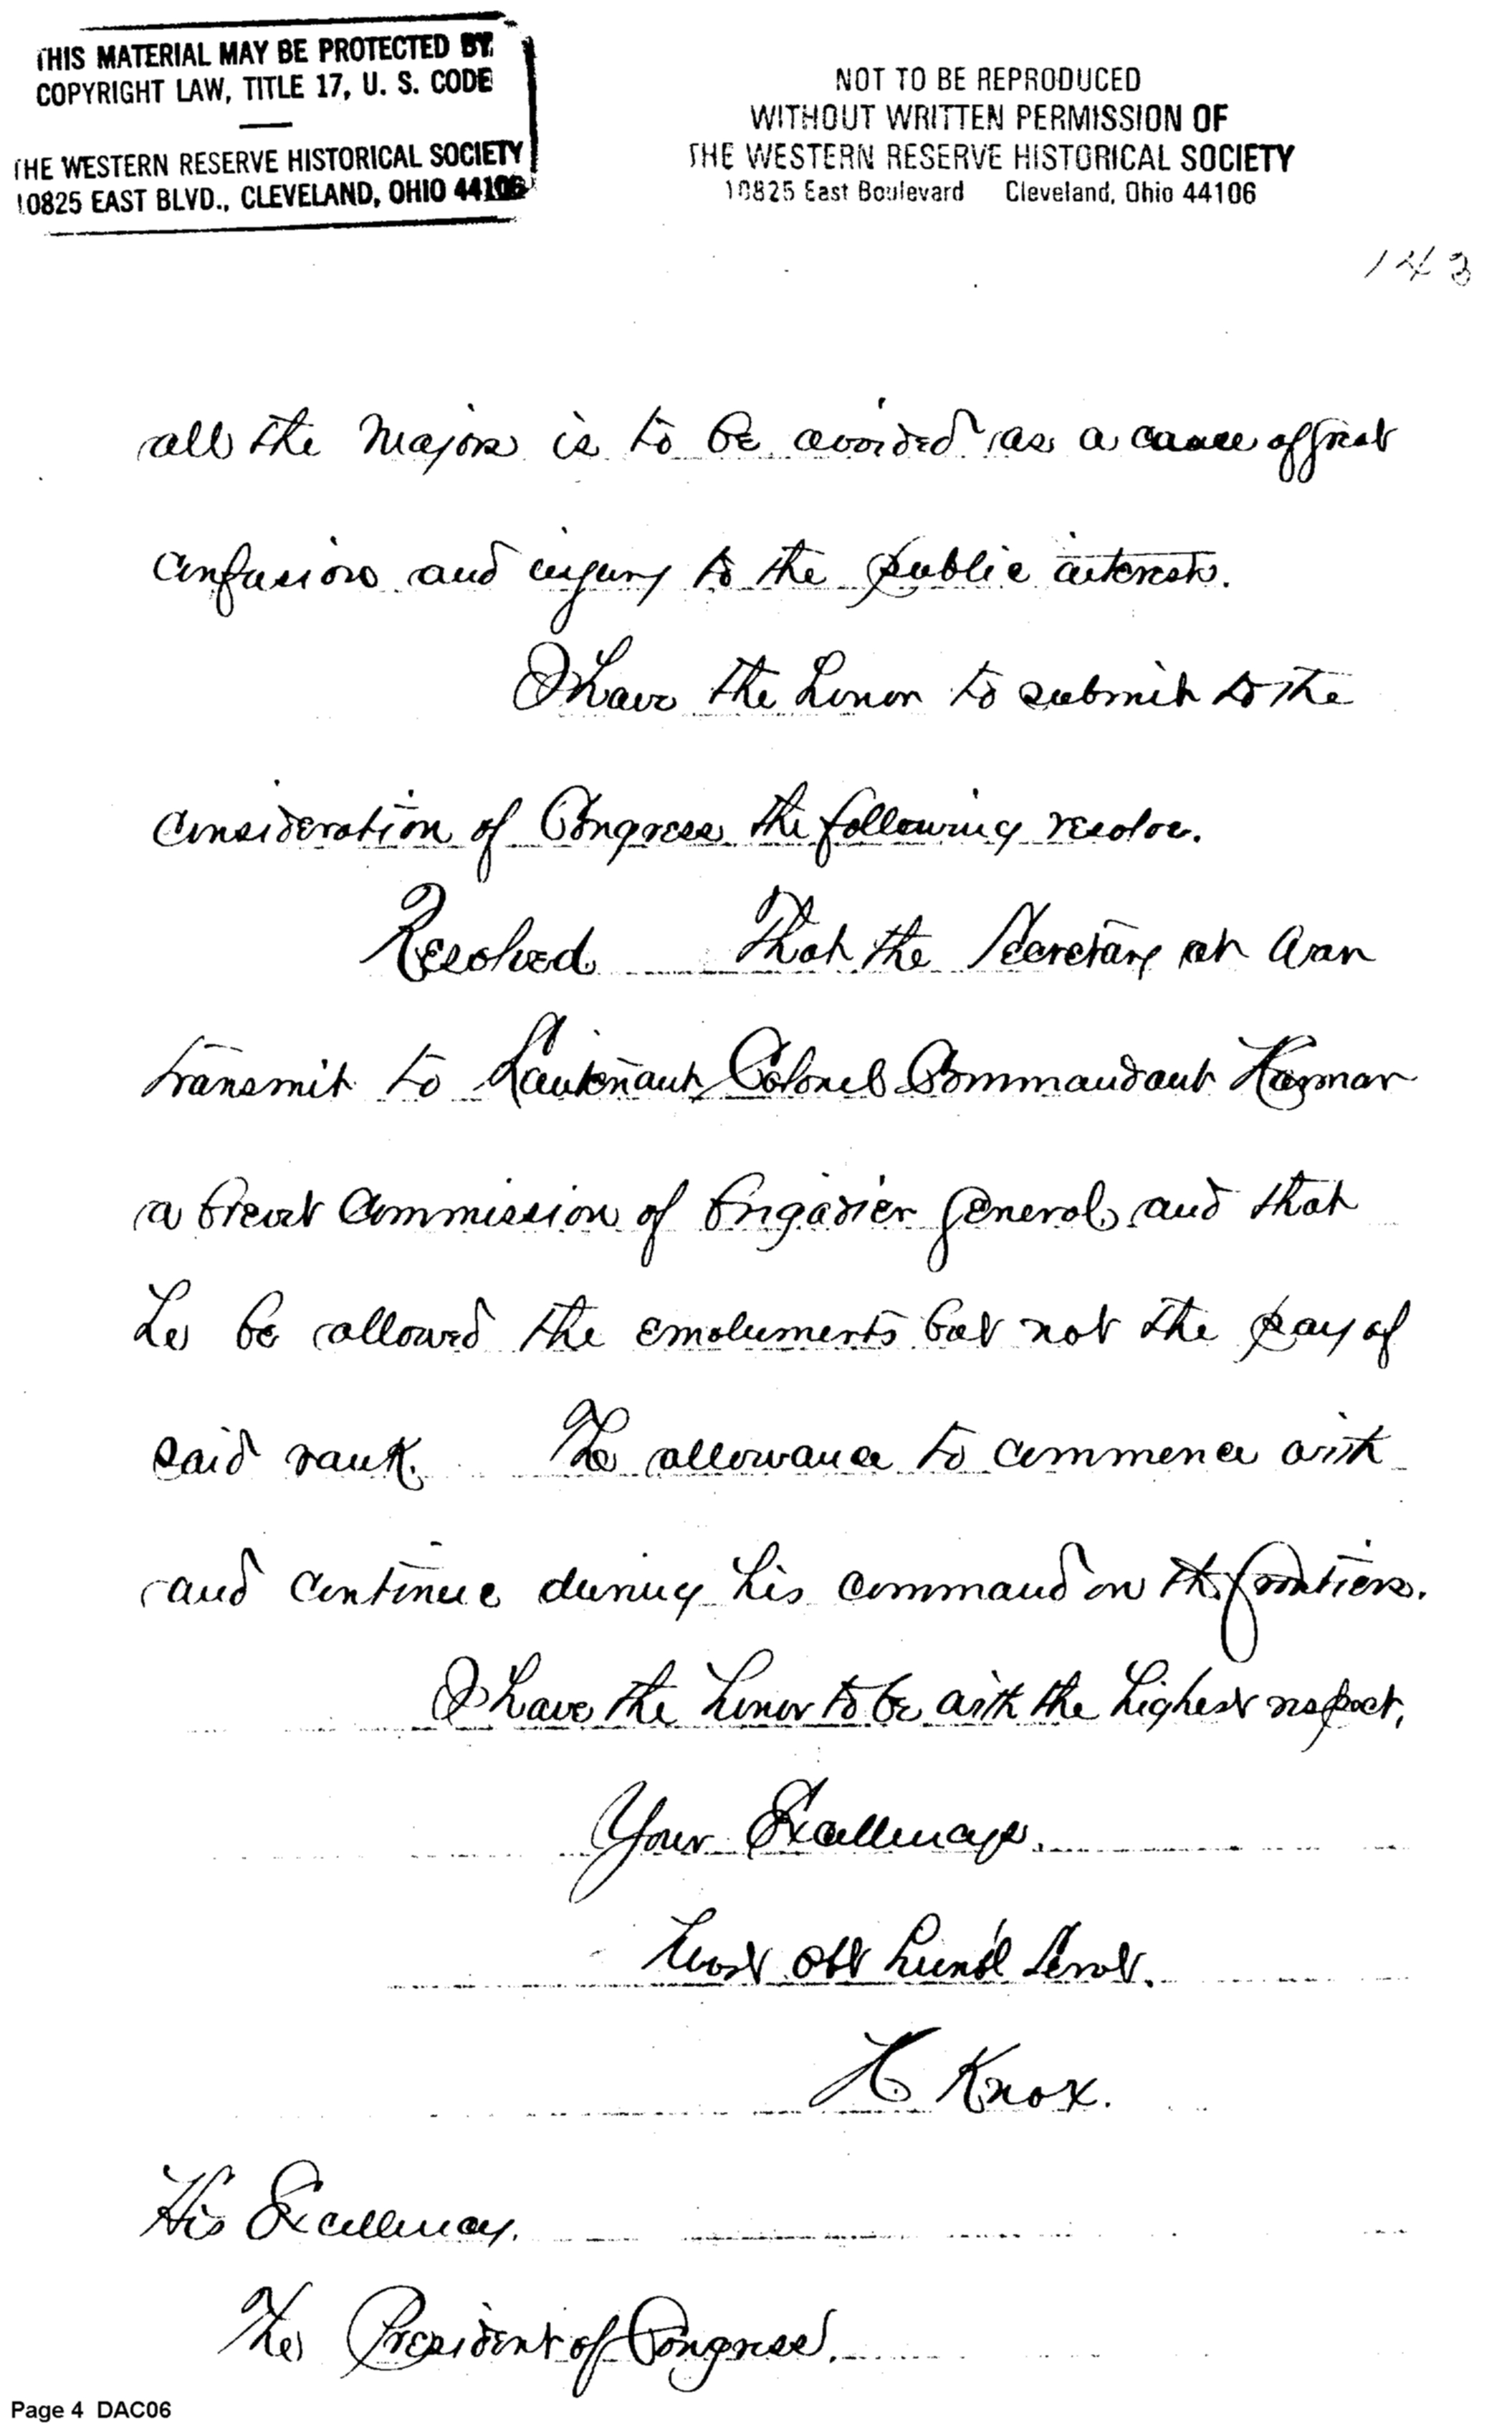 THIS MATERIAL MAY BE PROTECTED BY
COPYRIGHT LAW, TITLE 17, U. S. CODE
THE WESTERN RESERVE HISTORICAL SOCIETY
10825 EAST BLVD., CLEVELAND, OHIO 44106
NOT TO BE REPRODUCED
WITHOUT WRITTEN PERMISSION OF
THE WESTERN RESERVE HISTORICAL SOCIETY
10825 East Boulevard Cleveland, Ohio 44106
143
all the Majors is to be avoided as a cause of great
confusion and injury to the public interests.
I have the honor to submit to the
consideration of Congress the following resolve.
Resolved That the Secretary at War
transmit to Lieutenant Colonel Commandant Harmar
a brevet Commission of brigadier general, and that
he be allowed the emoluments but not the pay of
said rank. The allowance to commence with
and continue during his command on the frontiers.
I have the honor to be with the highest respect,
Your Excellencys.
Most obt humbl Servt.
H Knox.
His Excellency.
The President of Congress.
Page 4 DAC06